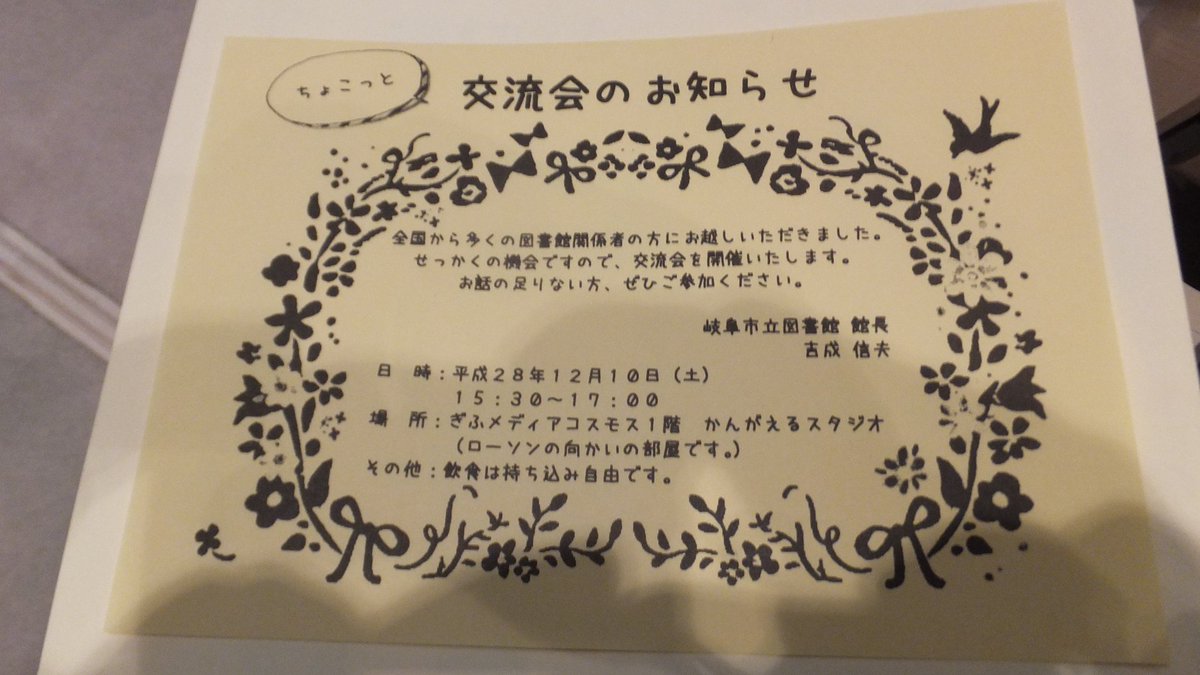 ちょこっと
交流会のお知らせ
全国から多くの図書館関係者の方にお越しいただきました。
せっかくの機会ですので、交流会を開催いたします。
お話の足りない方、ぜひご参加ください。
岐阜市立図書館 館長
吉成 信夫
日　時：平成２８年１２月１０日（土）
１５：３０～１７：００
場　所：ぎふメディアコスモス１階　かんがえるスタジオ
（ローソンの向かいの部屋です。）
その他：飲食は持ち込み自由です。